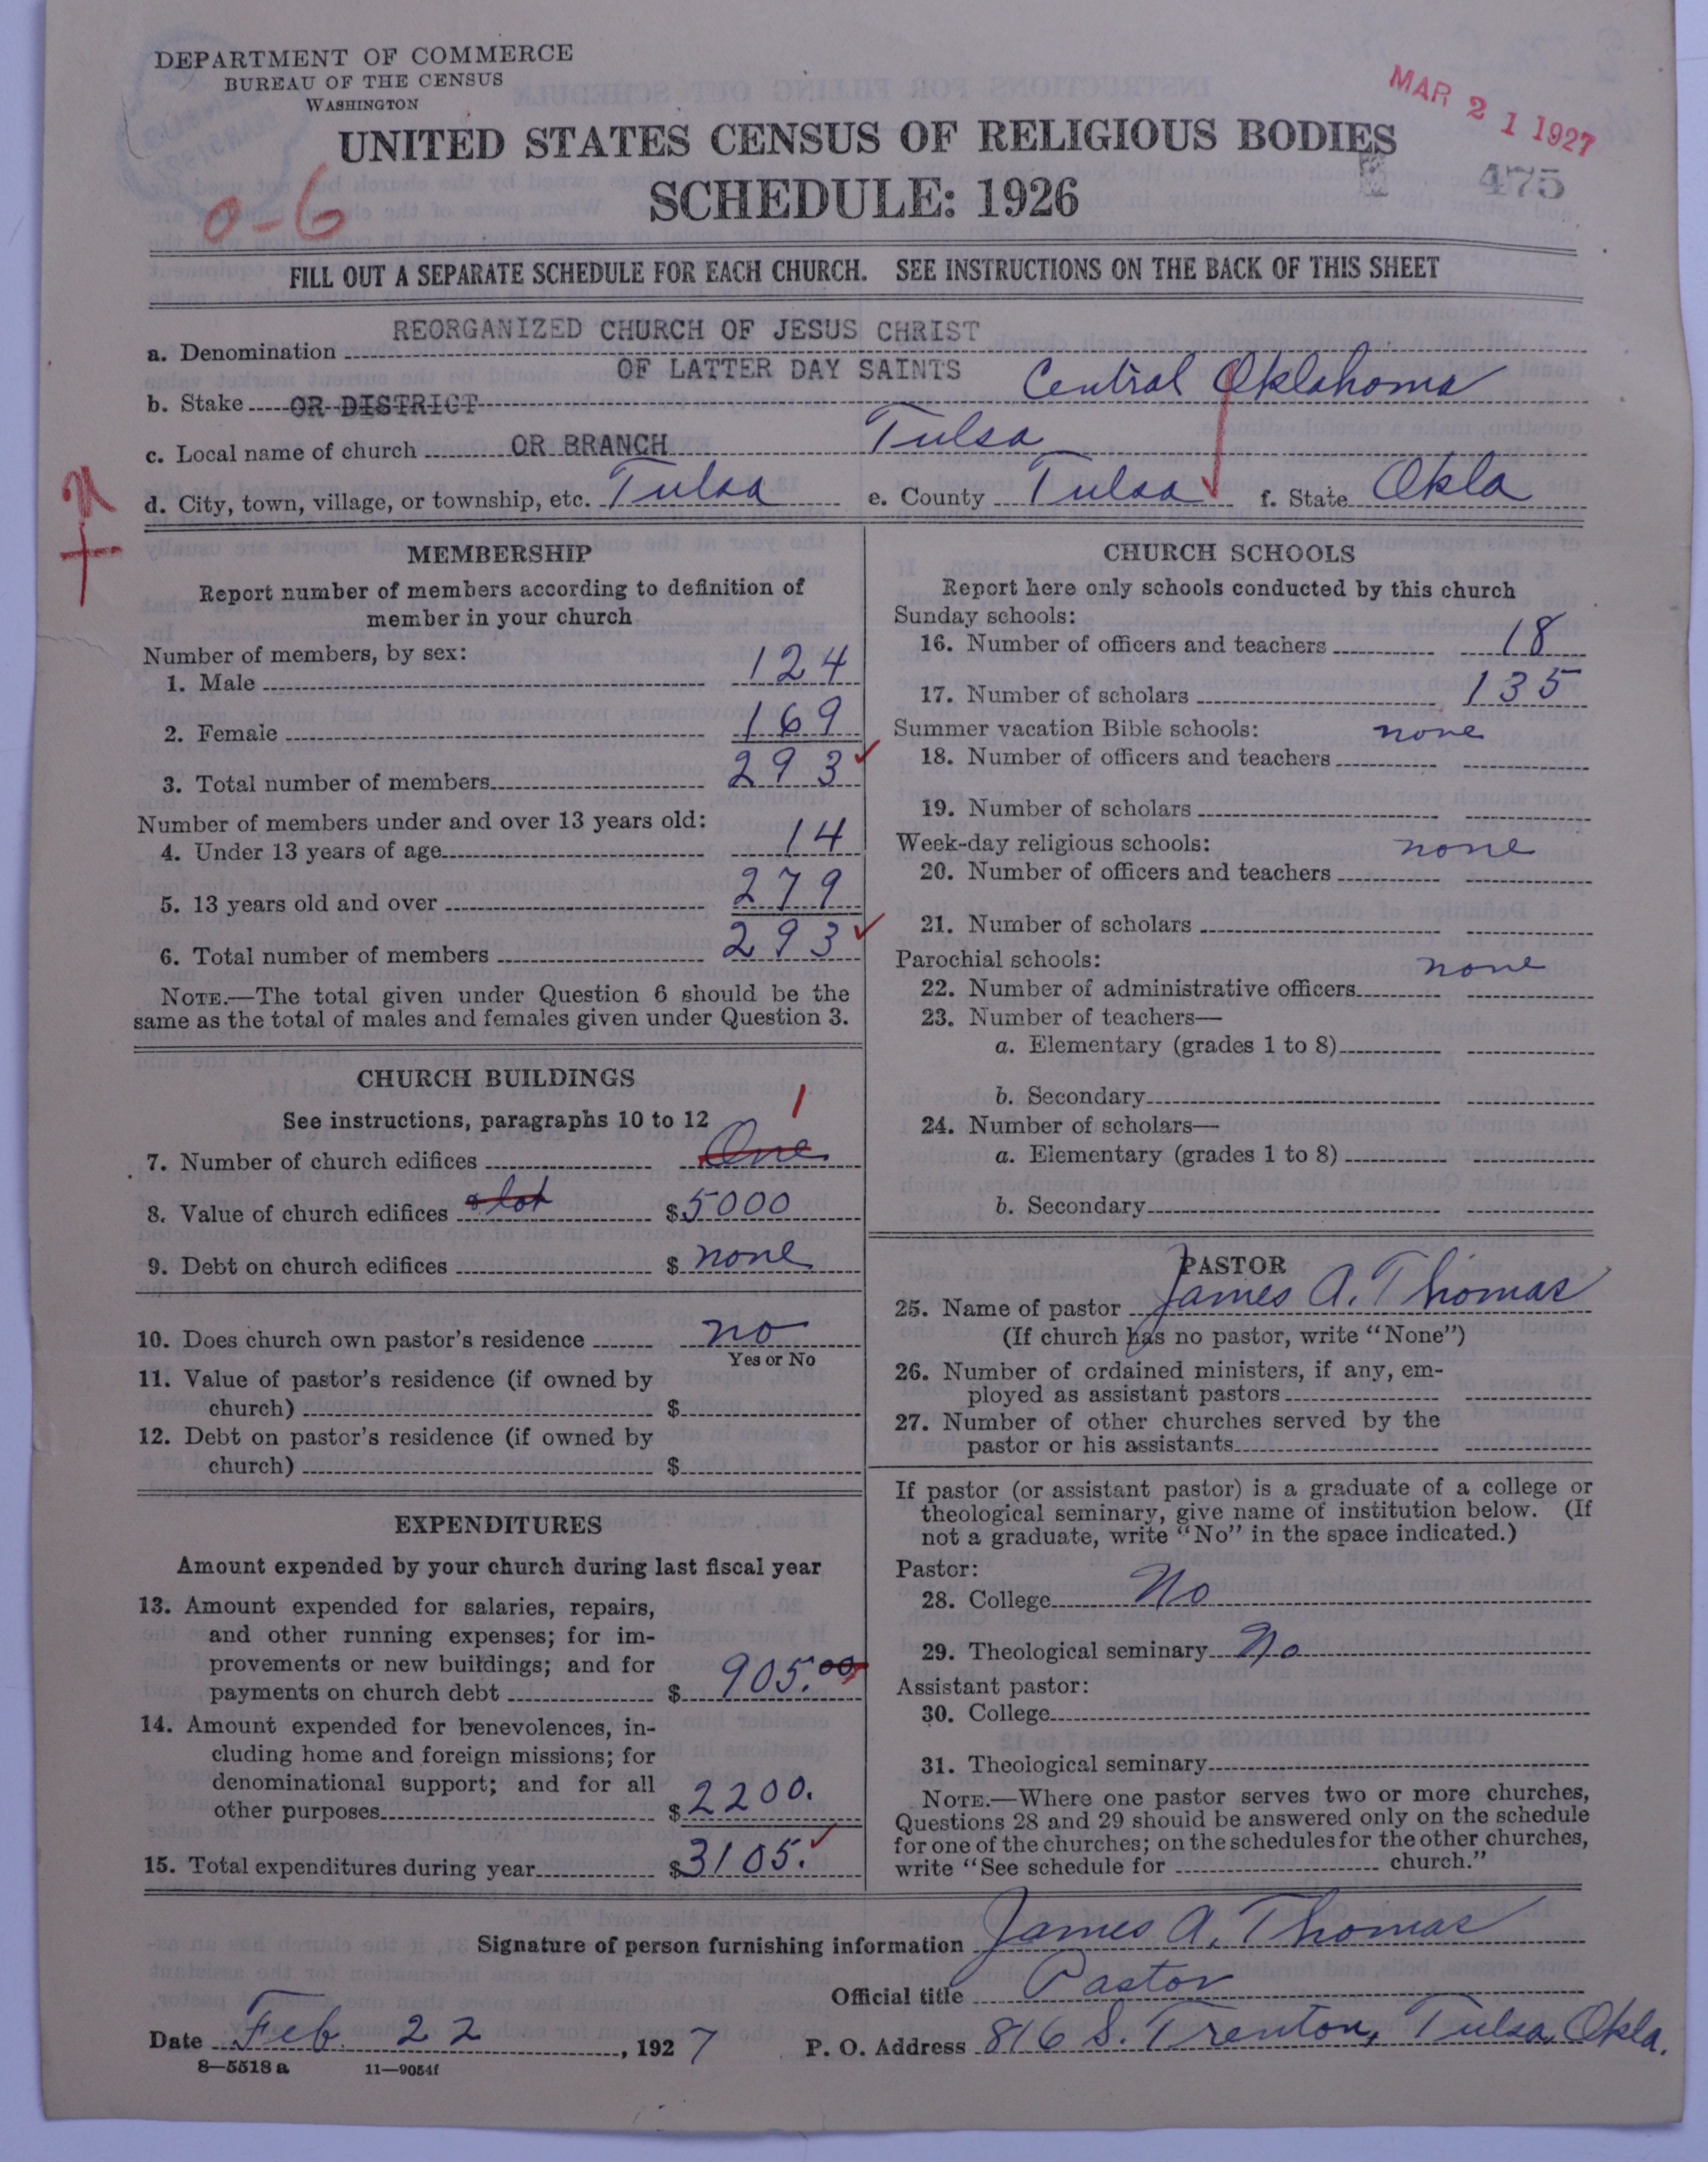 DEPARTMENT OF COMMERCE
BUREAU OF THE CENSUS
WASHINGTON
MAR 21 1927
UNITED STATES CENSUS OF RELIGIOUS BODIES
475
SCHEDULE: 1926
0-6
FILL OUT A SEPARATE SCHEDULE FOR EACH CHURCH. SEE INSTRUCTIONS ON THE BACK OF THIS SHEET
REORGANIZED CHURCH OF JESUS CHRIST
a. Denomination
OF LATTER DAY SAINTS
b. Stake OR DISTRICT Central Oklahoma
c. Local name of church OR BRANCH Tulsa
d. City, town, village, or township, etc. Tulsa e. County Tulsa f. State Okla
MEMBERSHIP
Report number of members according to definition of
member in your church
Number of members, by sex:
1. Male 124
2. Female 169
3. Total number of members 293
Number of members under and over 13 years old:
4. Under 13 years of age 14
5. 13 years old and over 279
6. Total number of members 293
NOTE.—The total given under Question 6 should be the
same as the total of males and females given under Question 3.
CHURCH BUILDINGS
See instructions, paragraphs 10 to 12
1
7. Number of church edifices One
8. Value of church edifices & lot $5000
9. Debt on church edifices $ none
10. Does church own pastor's residence no
Yes or No
11. Value of pastor's residence (if owned by
church) $
12. Debt on pastor's residence (if owned by
church) $
EXPENDITURES
Amount expended by your church during last fiscal year
13. Amount expended for salaries, repairs,
and other running expenses; for im-
provements or new buildings; and for
payments on church debt $ 905.00
14. Amount expended for benevolences, in-
cluding home and foreign missions; for
denominational support; and for all
other purposes $ 2200.
15. Total expenditures during year $3105.
CHURCH SCHOOLS
Report here only schools conducted by this church
Sunday schools:
16. Number of officers and teachers 18
17. Number of scholars 135
Summer vacation Bible schools: none
18. Number of officers and teachers
19. Number of scholars
Week-day religious schools: none
20. Number of officers and teachers
21. Number of scholars
Parochial schools: none
22. Number of administrative officers
23. Number of teachers—
a. Elementary (grades 1 to 8)
b. Secondary
24. Number of scholars—
a. Elementary (grades 1 to 8)
b. Secondary
PASTOR
25. Name of pastor James A. Thomas
(If church has no pastor, write "None")
26. Number of ordained ministers, if any, em-
ployed as assistant pastors
27. Number of other churches served by the
pastor or his assistants
If pastor (or assistant pastor) is a graduate of a college or
theological seminary, give name of institution below. (If
not a graduate, write "No" in the space indicated.)
Pastor:
28. College No
29. Theological seminary No
Assistant pastor:
30. College
31. Theological seminary
NOTE.—Where one pastor serves two or more churches,
Questions 28 and 29 should be answered only on the schedule
for one of the churches; on the schedules for the other churches,
write "See schedule for church."
Signature of person furnishing information James A. Thomas
Official title Pastor
Date Feb 22, 1927 P. O. Address 816 S. Trenton, Tulsa, Okla.
8—5518 a 11—9054f